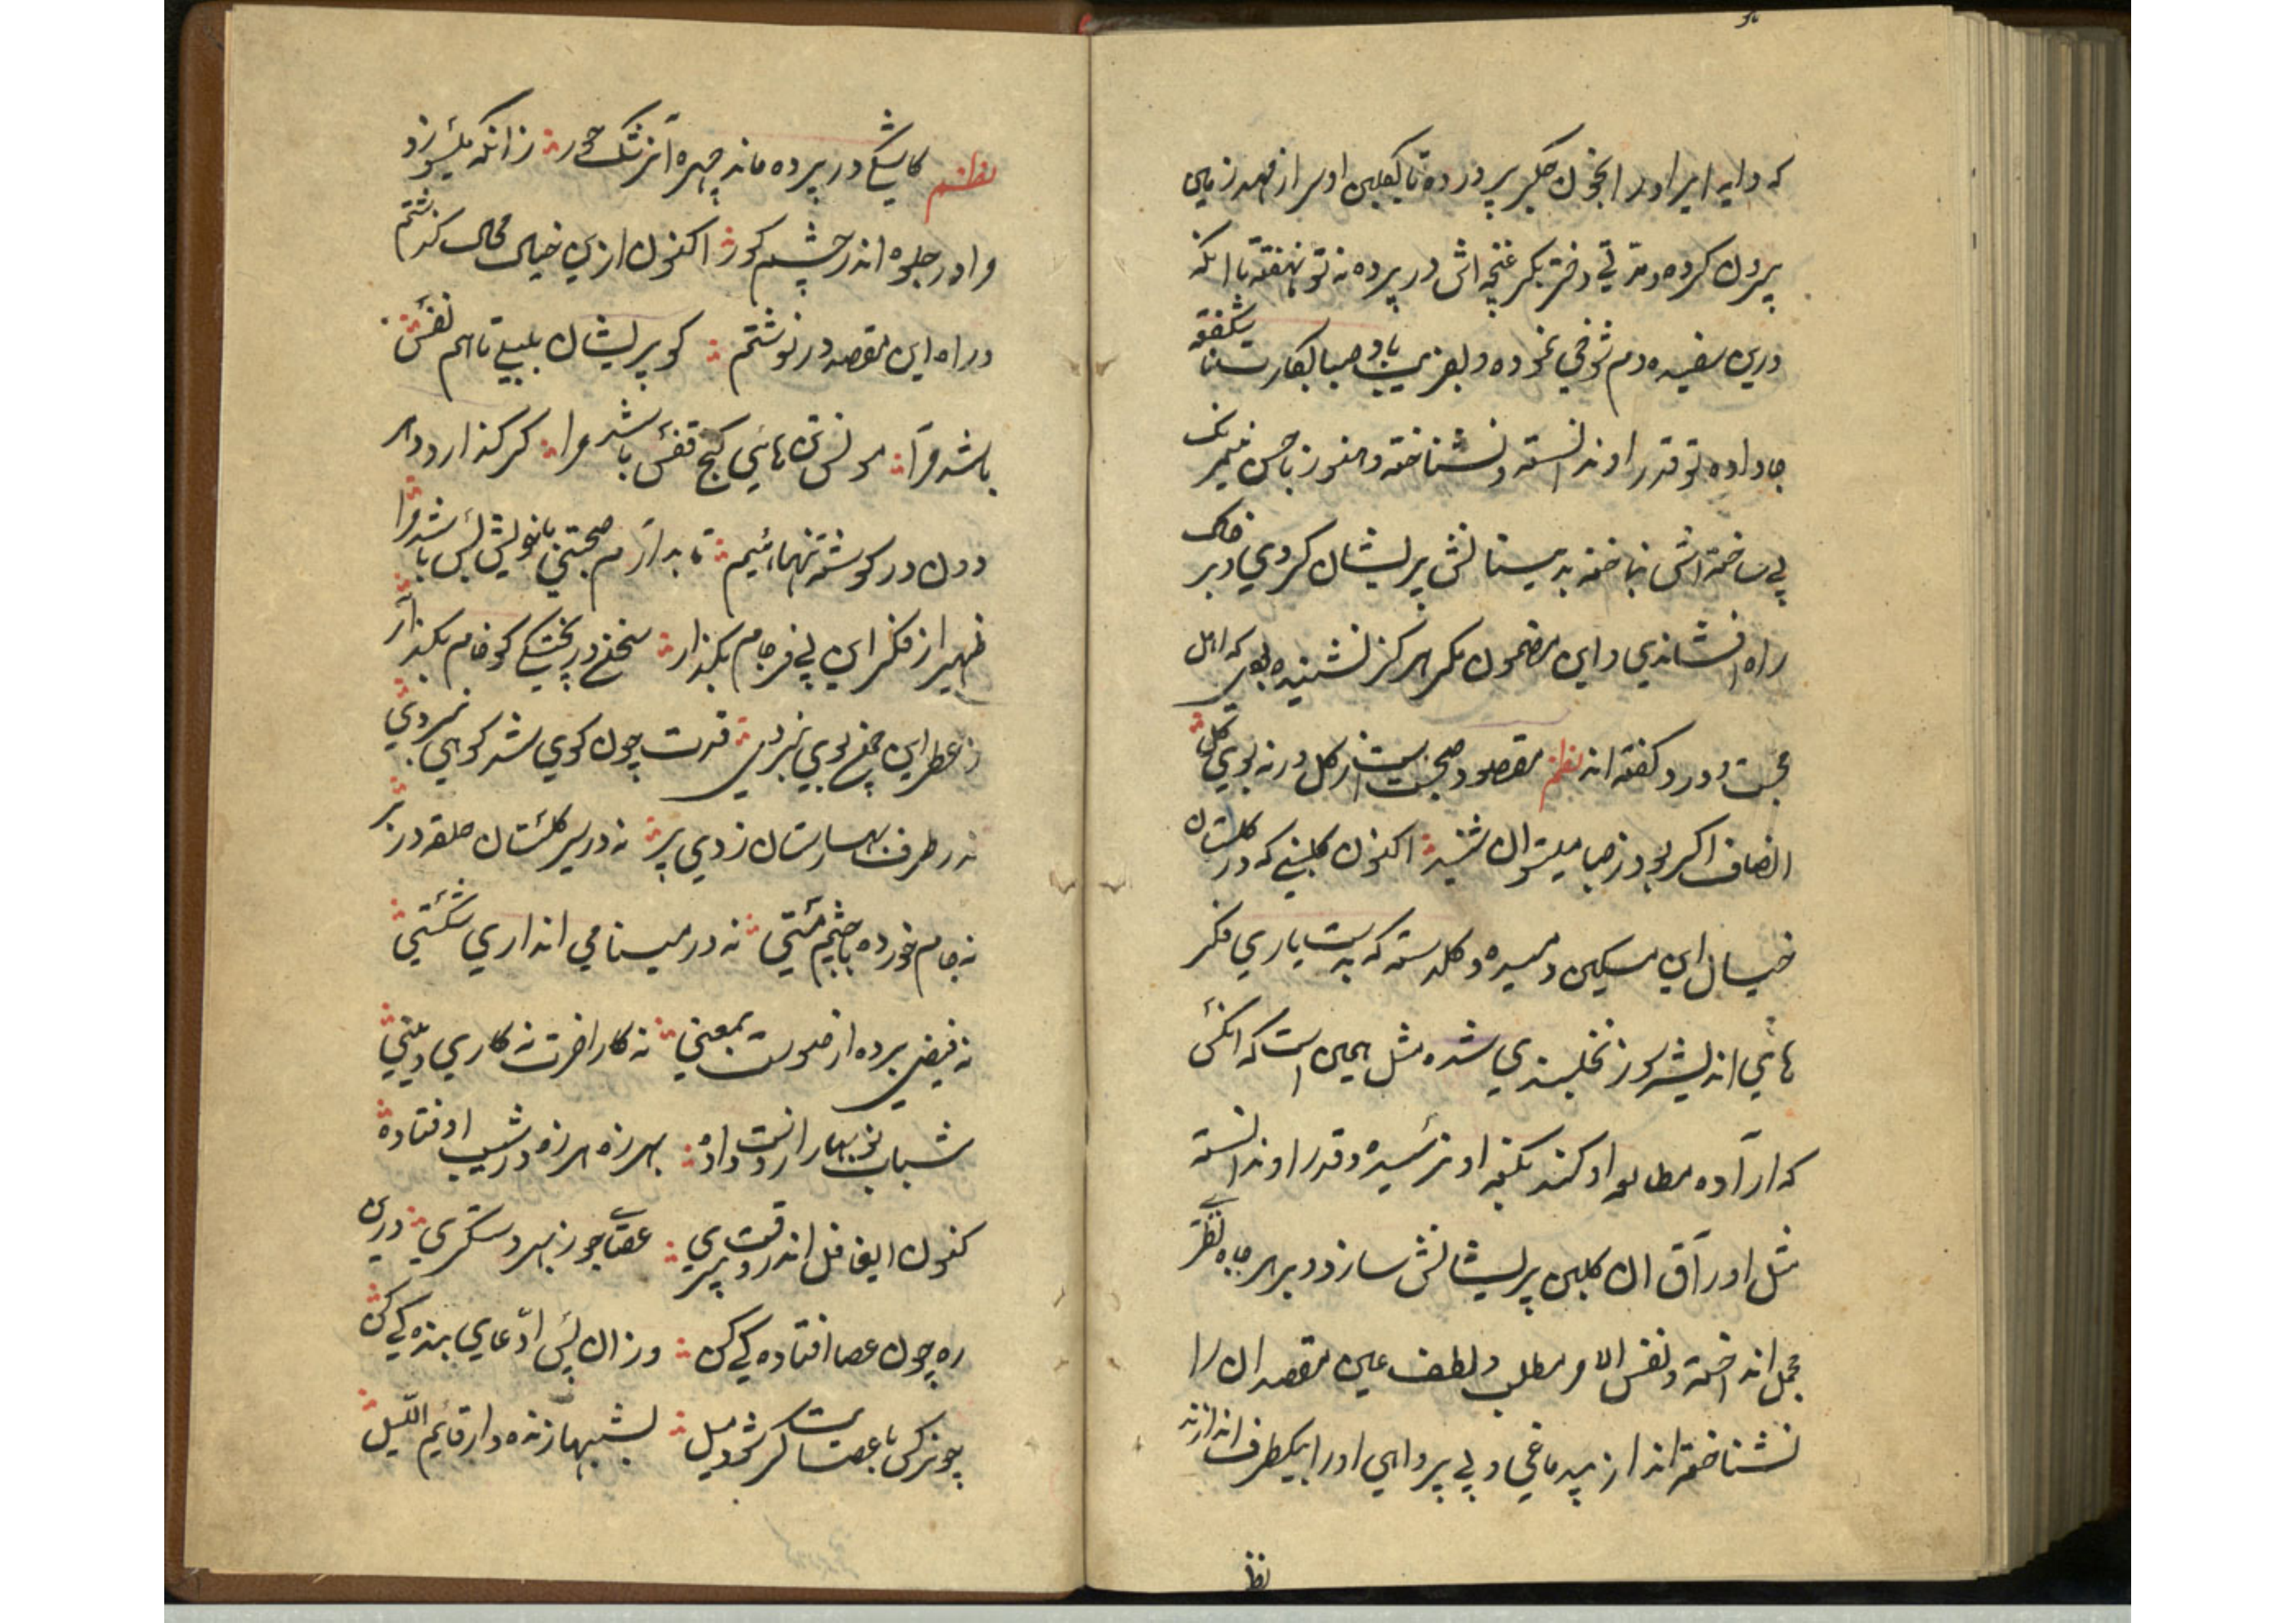 که دایه ابر او را بخون جگر پرورده تا گلبن او سر از مهد زمین
برون کرده و مدتی دختر بکر غنچه اش در پرده نه تو نهفته تا انکه
درین سفیده دم شوخی نموده و باد صبا شکفته
جا داده تو قدر او ندانسته و نشناخته و هنوز با حسن نیرنک
بی ساخته اش نباخته بدمیسنانش پریشان کردی و بر خاک
راه افشاندی و این مضمون مکر هرکز نشنیده بودی که اهل
محبت و درد کفته اند نظم مقصود صحبت است ز کل ورنه بوی کل
انصاف اکر بود ز صبا میتوان شنید اکنون کلبنی که در کلستان
خیال این مسکین دمیده و کلدسته که بدستیاری فکر
های اندیشه سوز نخلبندی شده مثل همین است که انکس
که اراده مطالعه او کند بکنه او نرسیده و قدر او ندانسته
مثل اوراق ان کلبن پریشانش سازد و بر هر جا نظری
مجمل انداخته و نفس الامر مطلب و لطف عین مقصد ان را
نشناخته انداز بیدماغی و بی پروایی او را بیکطرف اندازند
نظ
نظم کاشکی در پرده ماند چهره آن رشک حور زانکه میسوزد
مرا در جلوه اندر چشم کور اکنون ازین خیال محال کذشتم
در راه این مقصد در نوشتم کو پریشان بلبلی تا هم نفس
باشد مرا مونس تن های کنج قفس باشد مرا کر کذارد در
درون در کوشه تنهائیم تا بدارم صحبتی با خویش بس باشد مرا
ظهیر از فکر این بی فرجام بکذار سخن در پختکی کو خام بکذار
ز عطر این چمن بوی نبردی قدت چون کوی شد کویی نبردی
نه در طرف بهارستان زدی پر نه در سیر کلستان حلقه در
نه جام خورده با چشم مستی نه در مینا می انداری شکستی
نه فیضی برده از صورت بمعنی نه کار اخرت نه کار دینی
شباب نوبهار از دست داده بهرزه هرزه در شیب اوفتاده
کنون ایغافل اندر وقت پیری عصا جو ز بهر دستکیری درین
ره چون عصا افتاده کی کن وزان پس ادعای بنده کی کن
چو نرکس با عصا کر شودت میل بشبها زنده دار قائم اللیل